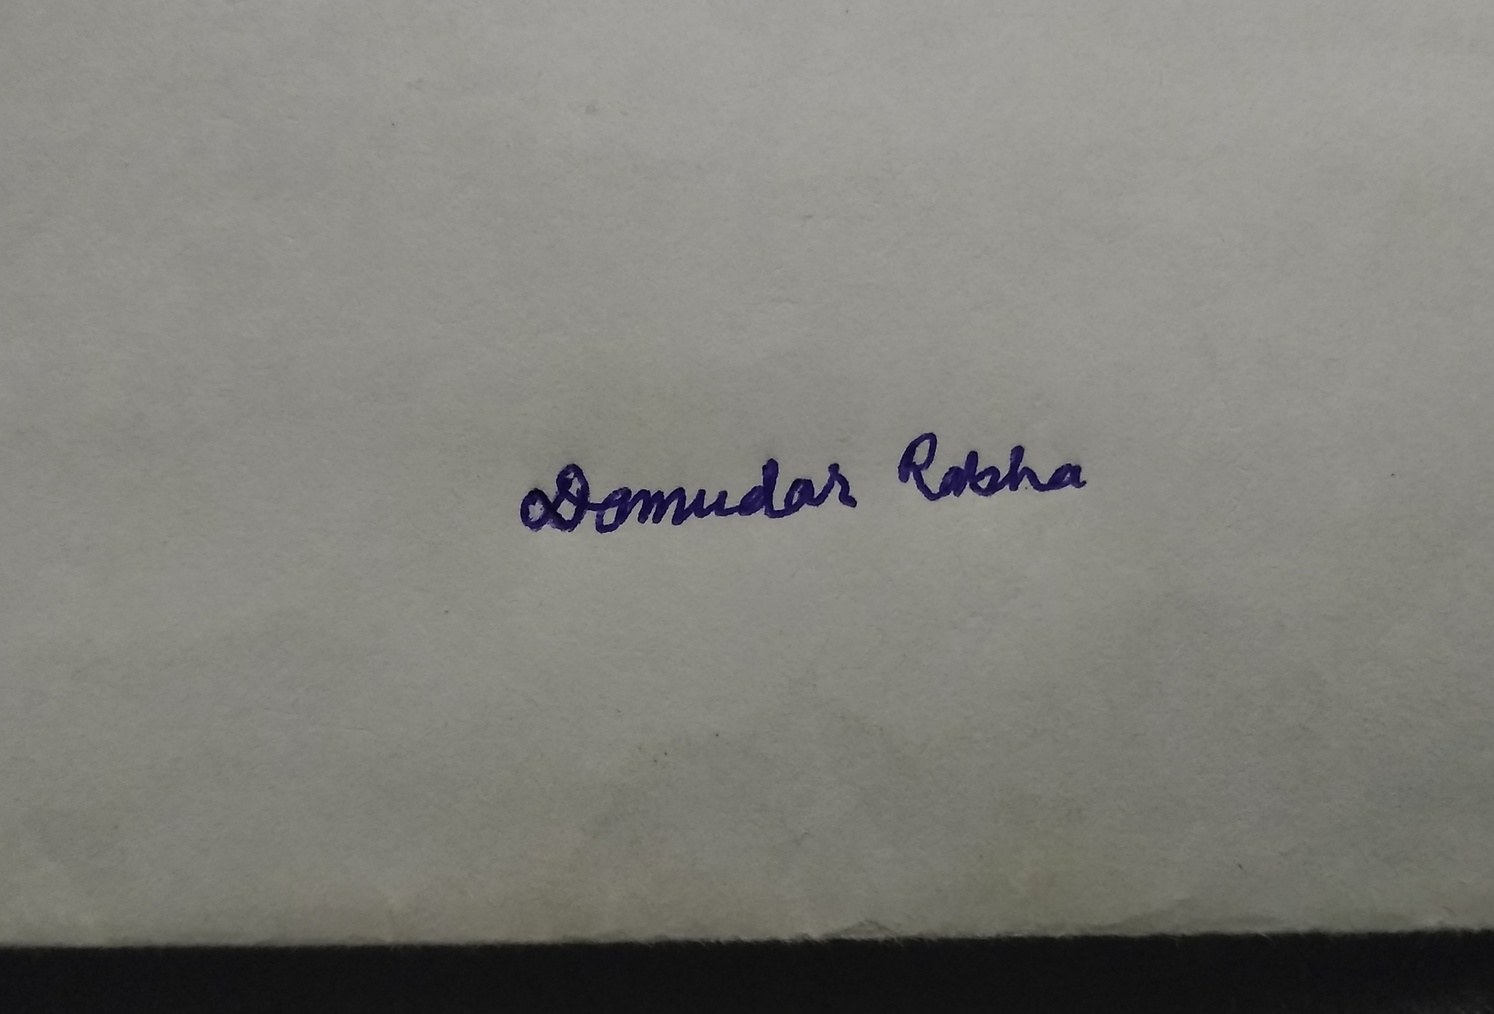 Damudar Rabha